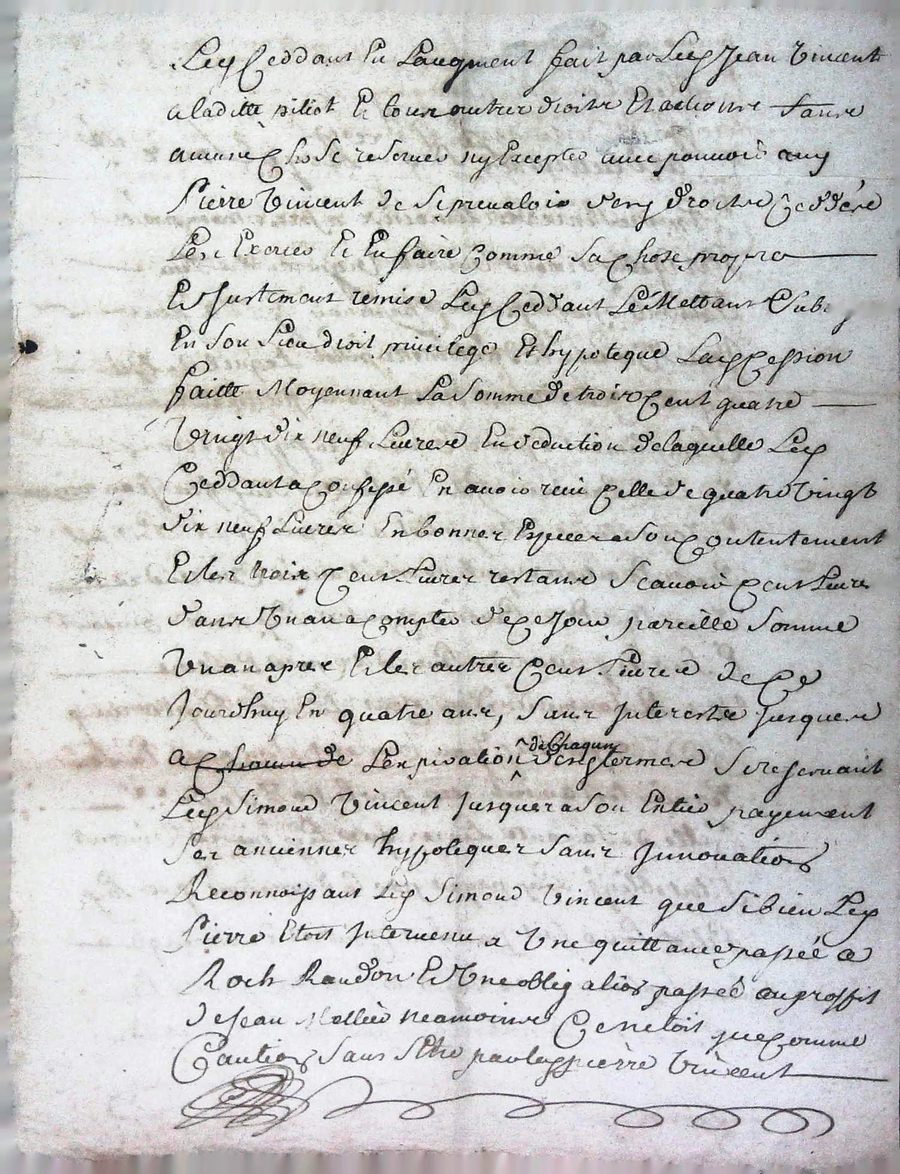 Ley Ceddant En Laugment fait par Ley Jean Vincent
a laditte pitiot Et tous autres droits Et actions sans
aucune Chose reserver ny Excepter avec pouvoir auy
Pierre Vincent de se prevaloir des droits Ceddés
Les Exercer Et En faire Comme sa Chose propre
Et Justement remise Ley Ceddant Le Mettant Sub
En Son Lieu droit privilege Et hypoteque Lay Cession
faitte Moyennant La Somme de trois Cent quatre
Vingt dix neuf Livres En deduction de laquelle Ley
Ceddant a Confessé En avoir reçu Celle de quatre Vingt
dix neuf Livres En bonnes Especes a Son Contentement
Et les trois Cent Livres restans Scavoir Cent Livres
dans Un an a Compter de Ce Jour pareille Somme
Un an apres Et les autres Cent Livres de Ce
Jourdhuy En quatre ans, Sans Interests Jusques
a Chacun de L'expiration de Chaqun des termes Se reservant
Ley Simond Vincent Jusques a Son Entier payement
Ses anciennes hypoteques Sans Innovation
Reconnoissant Ley Simond Vincent que Si bien Ley
Pierre Etoit Intervenu a Une quittance passée a
Roch Randon Et Une obligation passée au proffit
de Jean Mollier neamoins Ce netoit que Comme
Caution Sans par Ley pierre Vincent